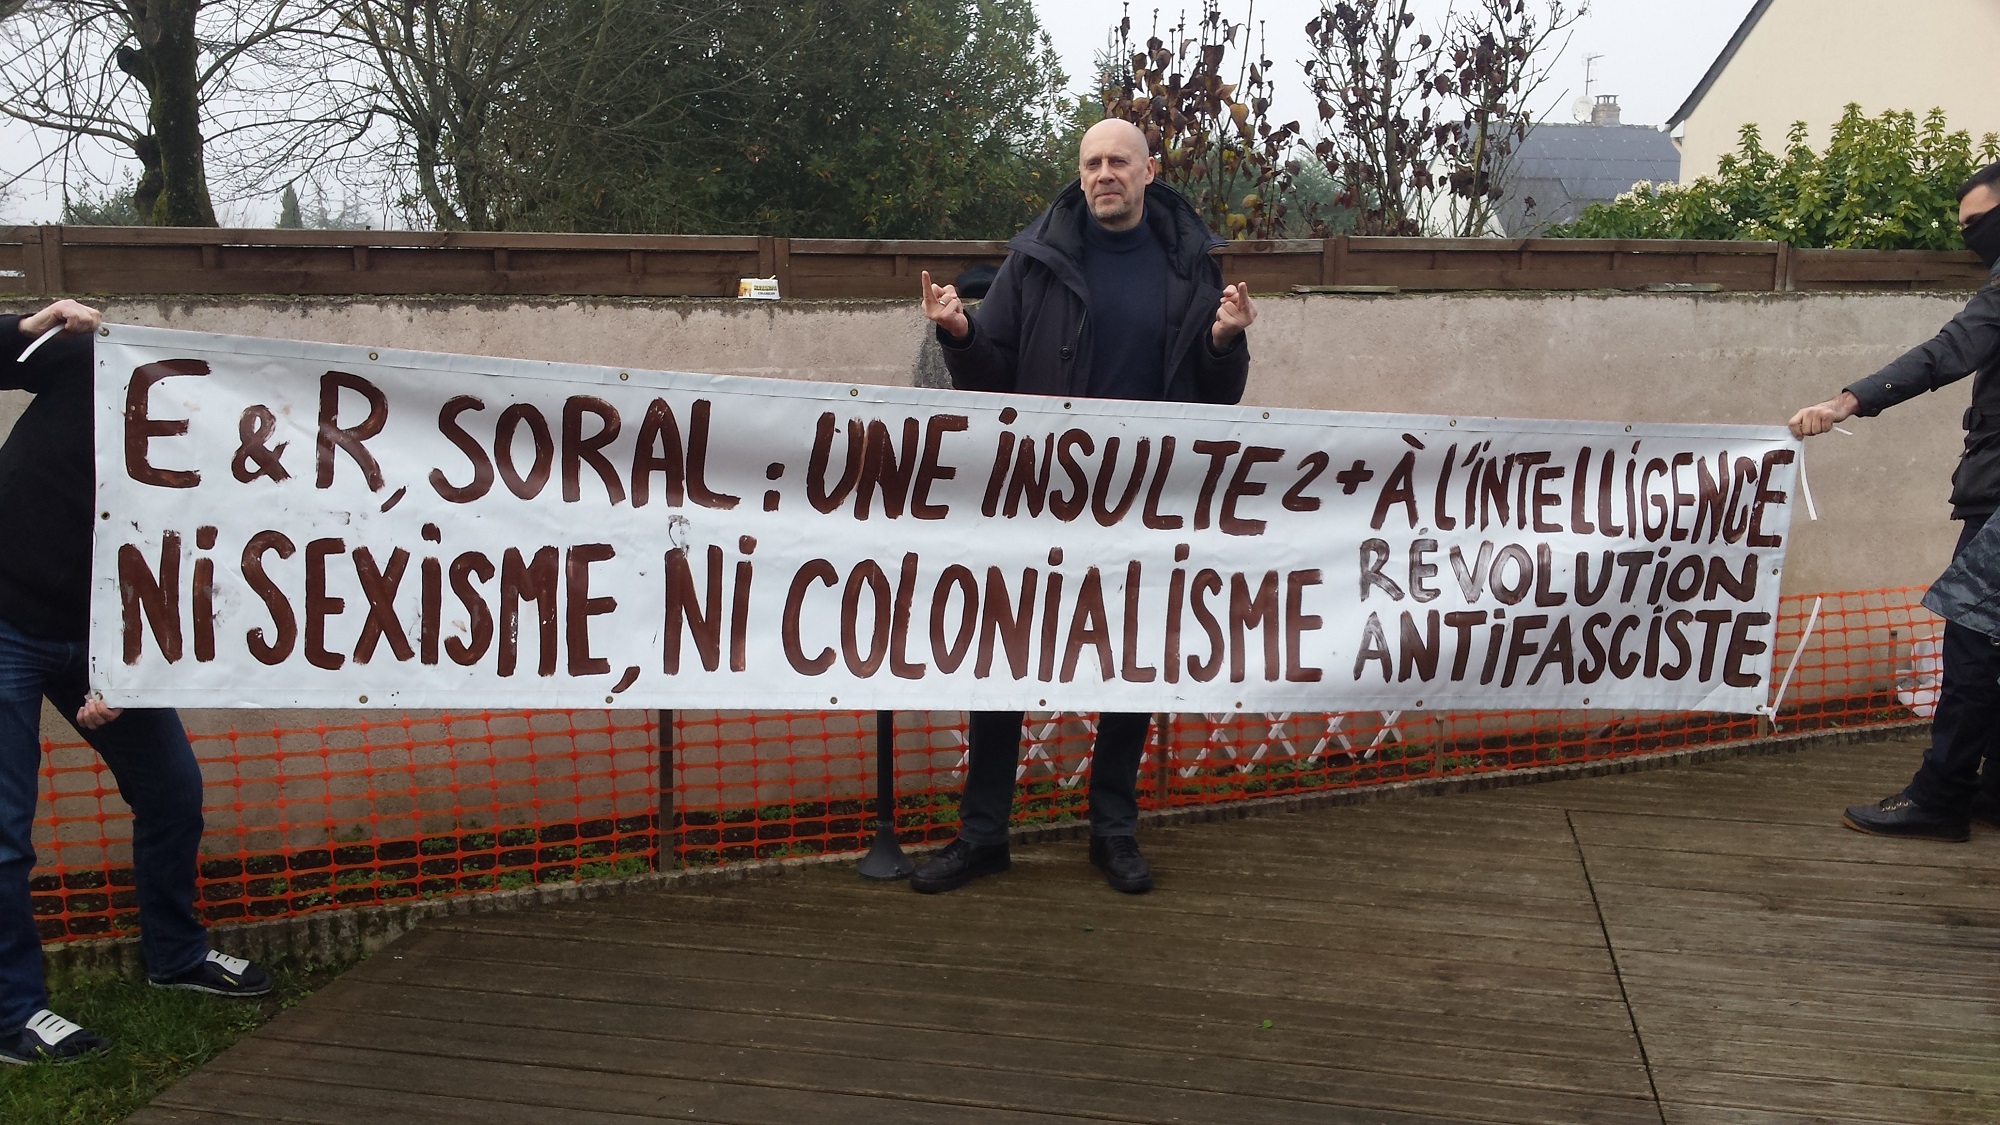 E & R, SORAL : UNE INSULTE 2 + À L'INTELLIGENCE
NI SEXISME, NI COLONIALISME
RÉVOLUTION
ANTIFASCISTE